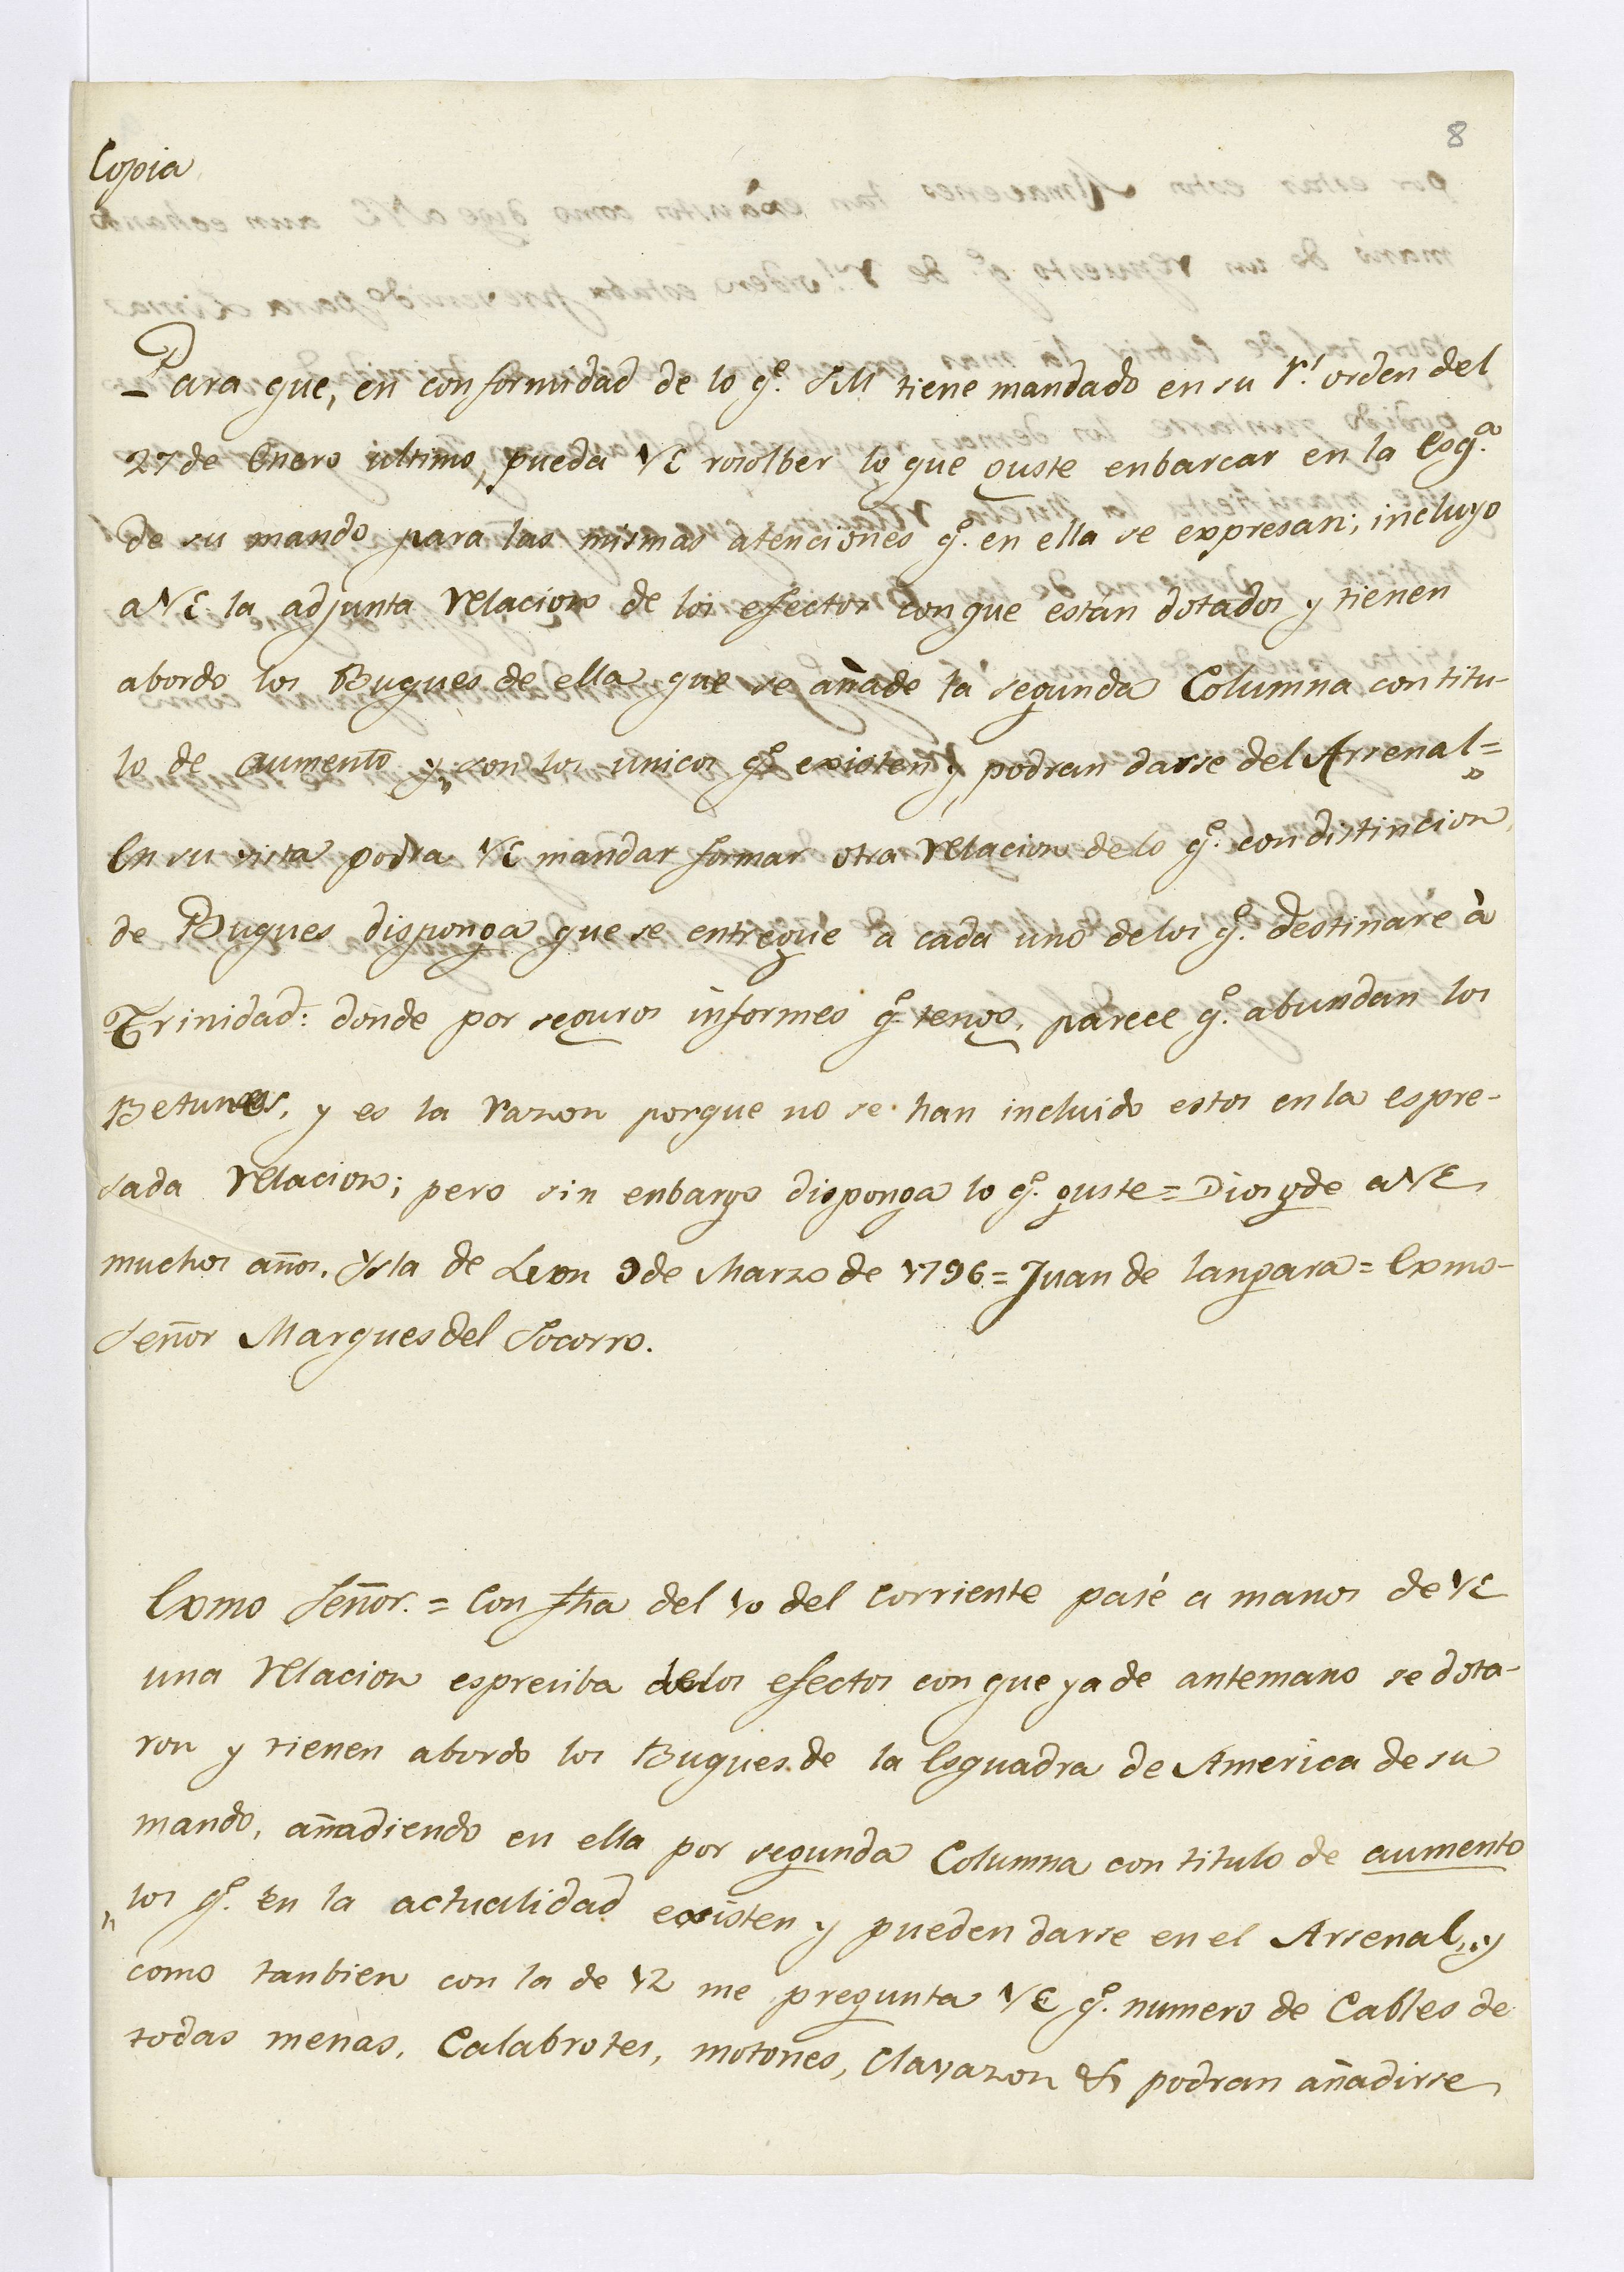 8
Copia
Para que, en conformidad de lo q.e SM tiene mandado en su r.l orden del
27 de Enero ultimo, pueda VE rosolber lo que guste enbarcar en la Esq.a
de su mando para las mismas atenciones q.e en ella se expresan; incluyo
a VE la adjunta relacion de los efectos con que están dotados y tienen
abordo los Buques de ella que se añade la segunda Columna con titu-
lo de aumento y, son los unicos q.e existen y podran darse del Arsenal =
En su vista podra VE mandar formar otra relacion de lo q.e con distincion
de Buques disponga que se entregue a cada uno de los q.e destinare à
Trinidad: donde por seguros informes q.e tengo, parece q.e abundan los
Betunes, y es la razon porque no se han incluido estos en la espre-
sada relacion; pero sin enbargo disponga lo q.e guste = Dios gde a VE
muchos años. Ysla de Leon 9 de Marzo de 1796 = Juan de Langara = Exmo
Señor Marques del Socorro.
Exmo Señor. = Con fha del 10 del corriente pasé a manos de VE
una relacion espresiba de los efectos con que ya de antemano se dota-
ron y tienen abordo los Buques de la Esquadra de America de su
mando, añadiendo en ella por segunda Columna con titulo de aumento
" los q.e en la actualidad existen y pueden darse en el Arsenal, y
como tanbien con la de 12 me pregunta VE q.e numero de Cables de
todas menas, Calabrotes, motones, Clavazon & podran añadirse